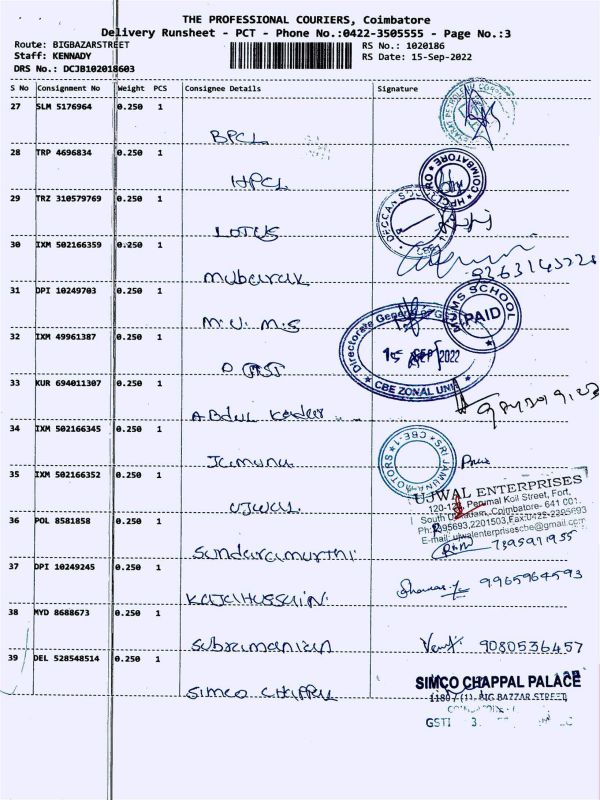 THE PROFESSIONAL COURIERS, Coimbatore
Delivery Runsheet - PCT - Phone No.:0422-3505555 - Page No.:3
Route: BIGBAZARSTREET RS No.: 1020186
Staff: KENNADY RS Date: 15-Sep-2022
DRS No.: DCJB102018603
S No Consignment No Weight PCS Consignee Details Signature
27 SLM 5176964 0.250 1
BPCL
28 TRP 4696834 0.250 1
HPCL
COIMBATORE
29 TRZ 310579769 0.250 1
LOTUS
DECCAN
30 IXM 502166359 0.250 1
Mubarak
31 DPI 10249703 0.250 1
M.U.M.S
SCHOOL
PAID
32 IXM 49961387 0.250 1
Directorate General of
15 SEP 2022
CBE ZONAL UNIT
33 KUR 694011307 0.250 1
Abdul Kader
34 IXM 502166345 0.250 1
Jamuna
SRI JAMUNA MOTORS CBE-1
35 IXM 502166352 0.250 1
UJWAL
UJWAL ENTERPRISES
Perumal Koil Street, Fort,
Coimbatore- 641 001.
E-mail: ujwalenterprisescbe@gmail.com
36 POL 8581858 0.250 1
Sundaramurthi
7395971955
37 DPI 10249245 0.250 1
KAJA HUSSAIN
9965964593
38 MYD 8688673 0.250 1
Subramanian
9080536457
39 DEL 528548514 0.250 1
SIMCO CHAPPAL
SIMCO CHAPPAL PALACE
BIG BAZZAR STREET,
GSTI